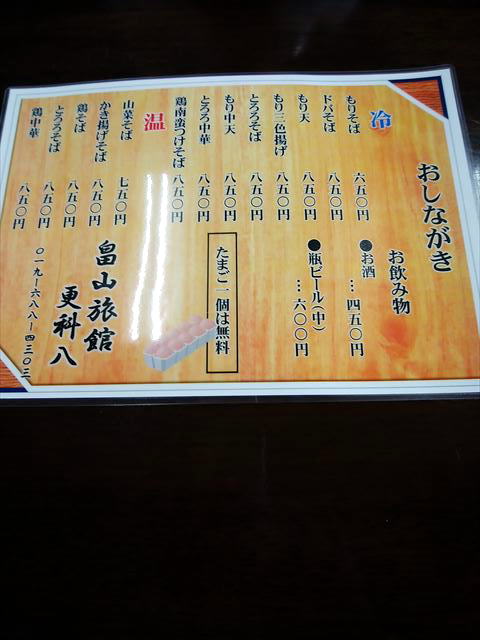 おしながき
冷
もりそば 六五〇円
ドバそば 八五〇円
もり天 八五〇円
もり三色揚げ 八五〇円
とろろそば 八五〇円
もり中天 八五〇円
とろろ中華 八五〇円
鶏南蛮つけそば 八五〇円
温
山菜そば 七五〇円
かき揚げそば 八五〇円
鶏そば 八五〇円
とろろそば 八五〇円
鶏中華 八五〇円
お飲み物
●お酒 … 四五〇円
●瓶ビール(中) … 六〇〇円
たまご一個は無料
畠山旅館
更科八
〇一九ー六八八ー四二〇三